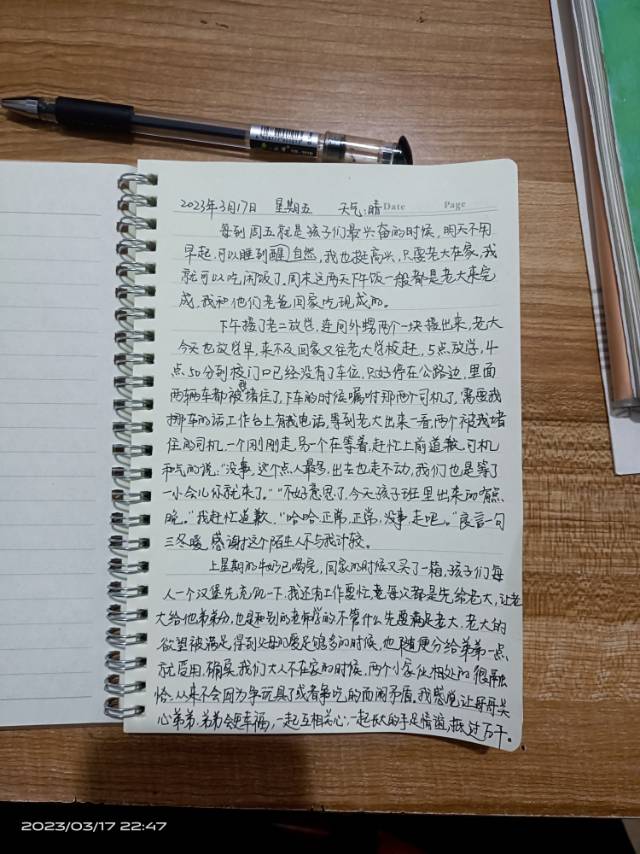 2023年3月17日 星期五 天气:晴 Date Page
每到周五就是孩子们最兴奋的时候,明天不用
早起,可以睡到自然醒,我也挺高兴,只要老大在家,我
就可以吃闲饭了。周末这两天下午饭一般都是老大来完
成,我和他们老爸回家吃现成的。
下午接了老二放学,连同外甥两个一块接出来,老大
今天也放学早,来不及回家又往老大学校赶,5点放学,4
点50分到校门口已经没有了车位,只好停在公路边,里面
两辆车都被我堵住了,下车的时候嘱咐那两个司机了,需要我
挪车的话工作台上有我电话,等到老大出来一看,两个被我堵
住的司机,一个刚刚走,另一个在等着,赶忙上前道歉,司机
和气的说:“没事,这个点人最多,出去也走不动,我们也是等了
一小会儿你就来了。”“不好意思了,今天孩子班里出来的有点
晚。”我赶忙道歉,“哈哈,正常,正常,没事,走吧。”良言一句
三冬暖,感谢这个陌生人不与我计较。
上星期的牛奶已喝完,回家的时候又买了一箱,孩子们每
人一个汉堡先充饥一下,我还有工作要忙,每次都是先给老大,让老
大给他弟弟分,也是和别的老师学的不管什么先要满足老大,老大的
欲望被满足,得到父母的爱足够多的时候,他随便分给弟弟一点
就管用,确实,我们大人不在家的时候,两个小家伙相处的很融
恰,从来不会因为争玩具了或者争吃的而闹矛盾。我感觉让哥哥关
心弟弟,弟弟会更幸福,一起互相关心,一起长大的手足情谊,抵过万千。
2023/03/17 22:47